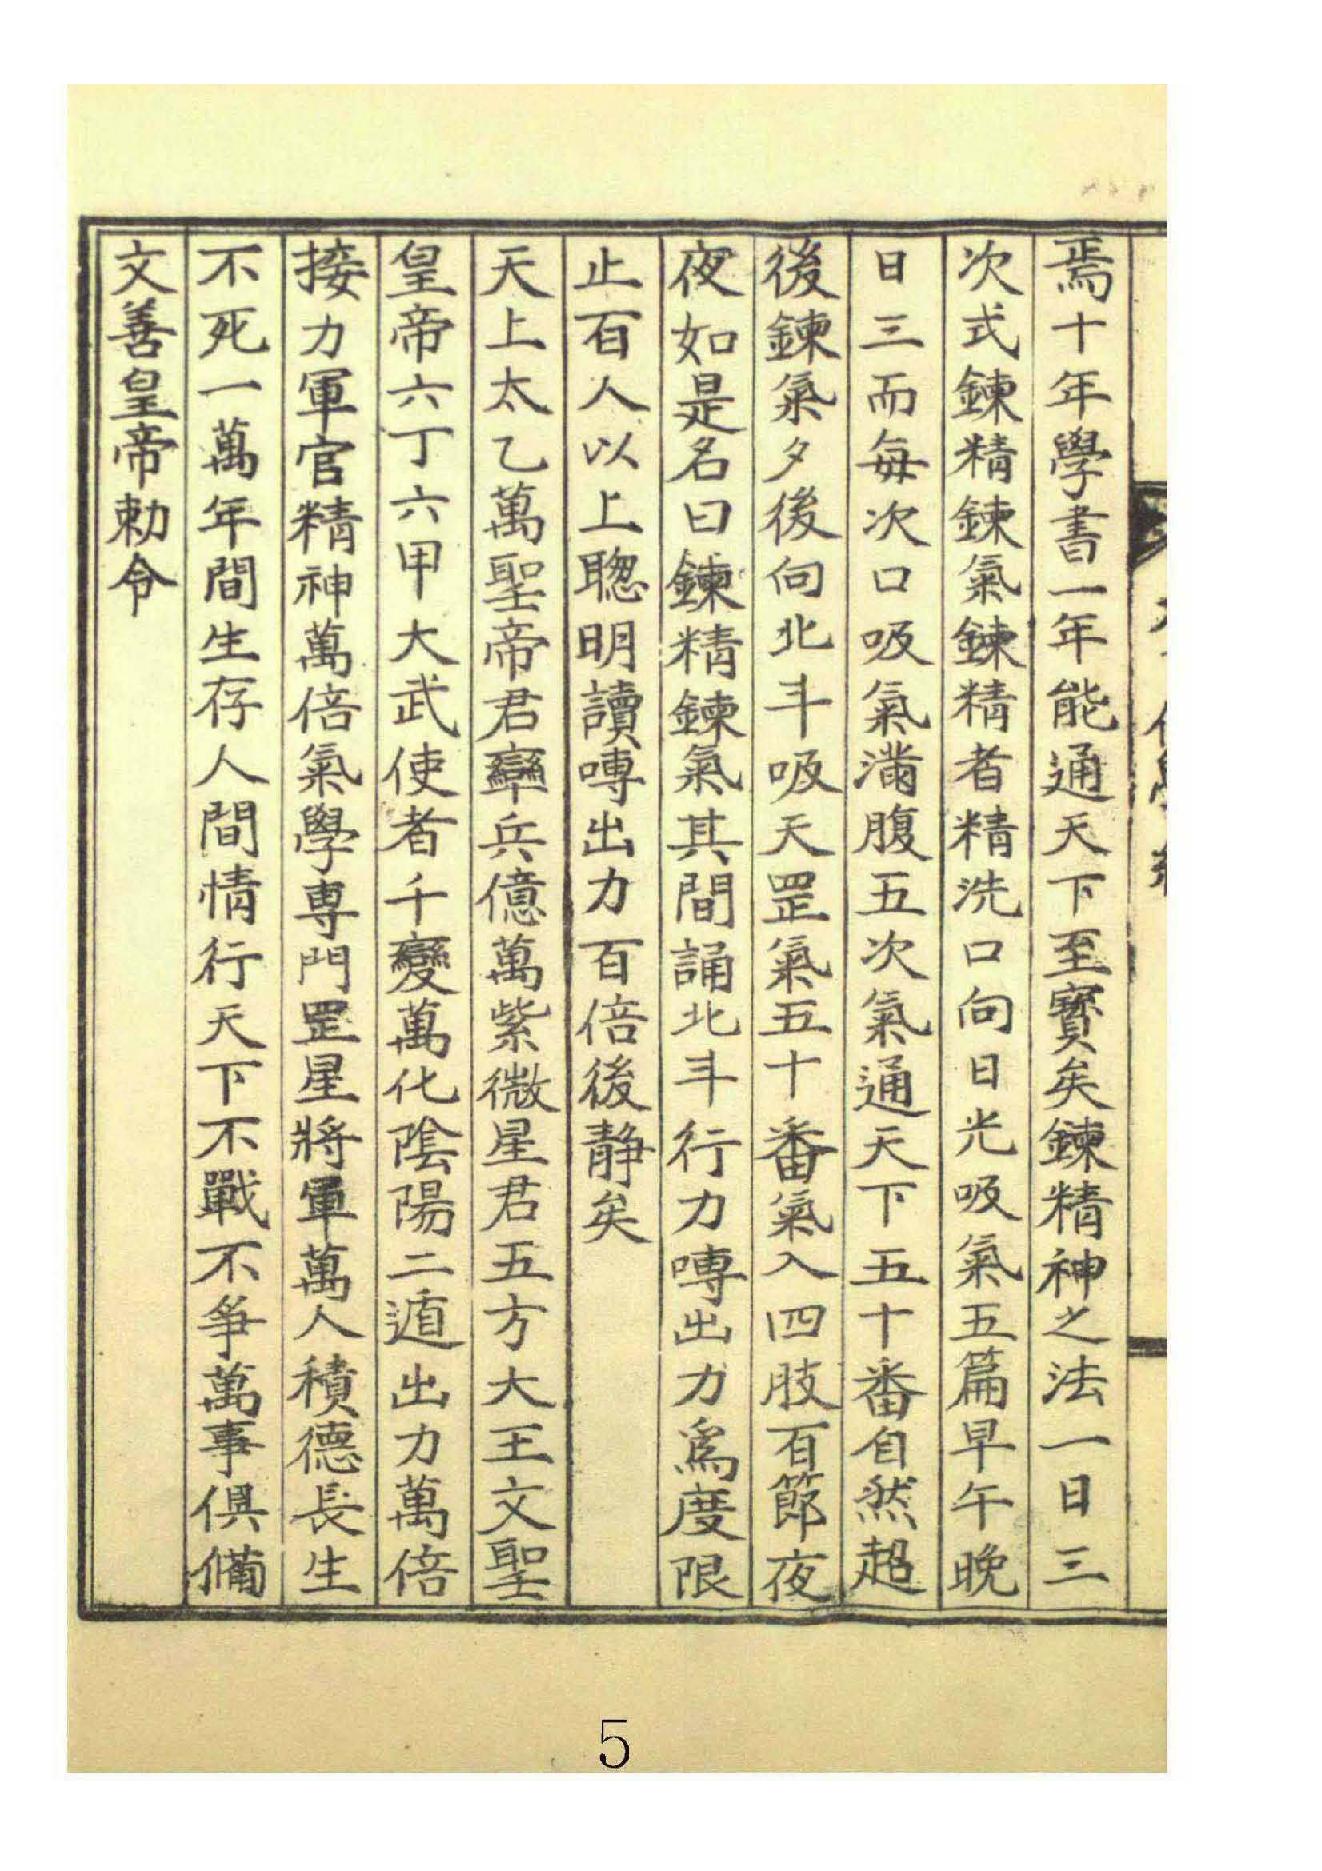 焉十年學書一年能通天下至寶矣鍊精神之法一日三
次式鍊精鍊氣鍊精者精洗口向日光吸氣五篇早午晚
日三而每次口吸氣滿腹五次氣通天下五十番自然超
後鍊氣夕後向北斗吸天罡氣五十番氣入四肢百節夜
夜如是名曰鍊精鍊氣其間誦北斗行力嚩出力爲度限
止百人以上聰明讀嚩出力百倍後靜矣
天上太乙萬聖帝君率兵億萬紫微星君五方大王文聖
皇帝六丁六甲大武使者千變萬化陰陽二遁出力萬倍
接力軍官精神萬倍氣學專門罡星將軍萬人積德長生
不死一萬年間生存人間情行天下不戰不爭萬事俱備
文善皇帝勅令
5